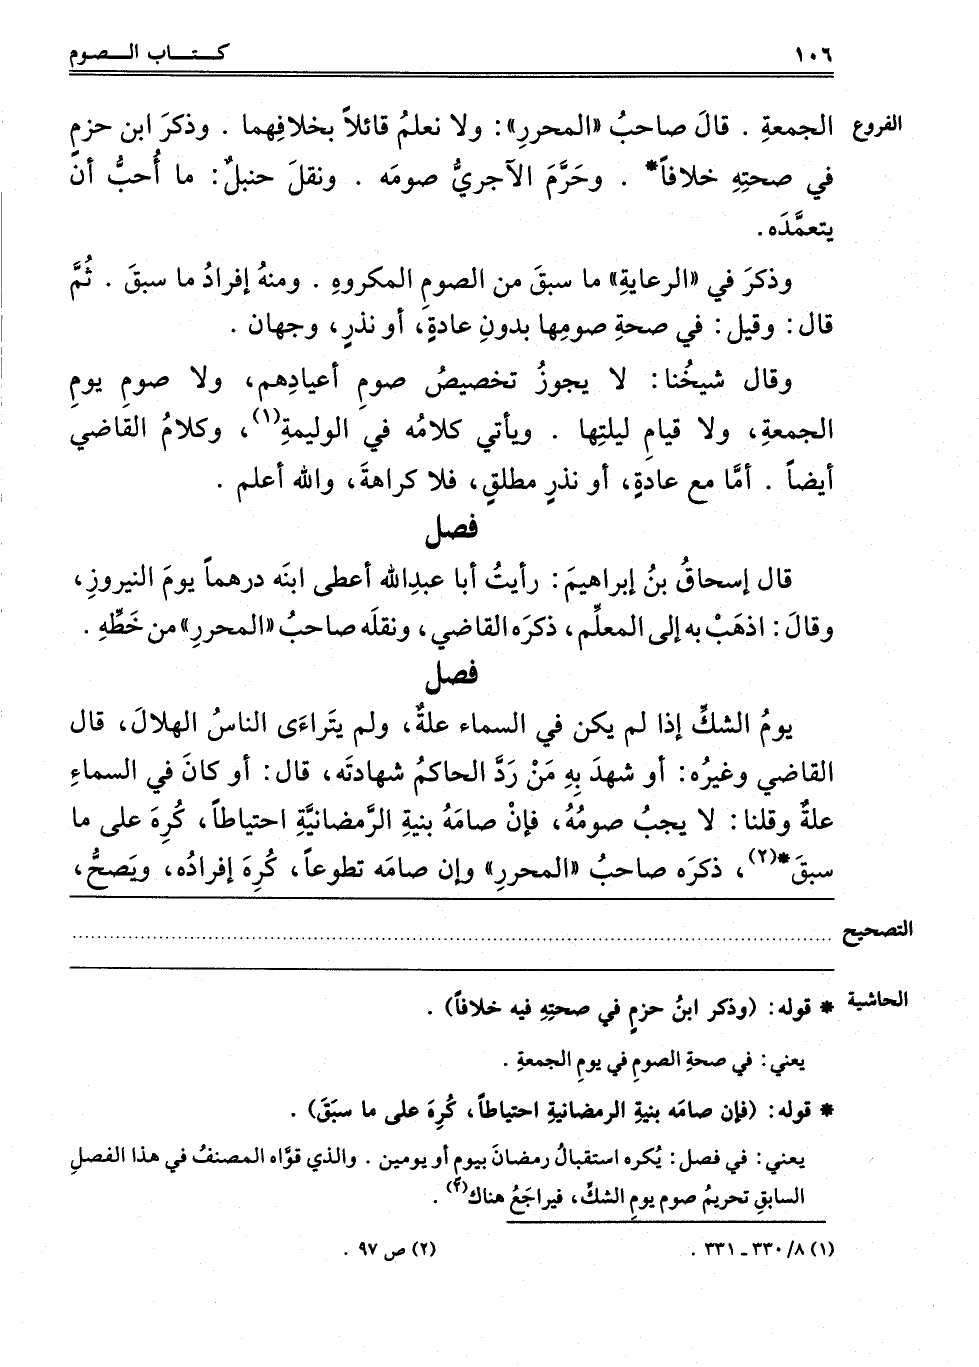 ١٠٦ كـتـــاب الـــصـوم
الفروع الجمعةِ . قالَ صاحبُ «المحررِ»: ولا نعلمُ قائلاً بخلافِهما . وذكرَ ابن حزمٍ
في صحتِهِ خلافاً* . وحَرَّمَ الآجريُّ صومَه . ونقلَ حنبلٌ: ما أُحبُّ أنْ
يتعمَّدَه.
وذكرَ في «الرعايةِ» ما سبقَ من الصومِ المكروهِ . ومنهُ إفرادُ ما سبقَ . ثُمَّ
قال: وقيل: في صحةِ صومِها بدونِ عادةٍ، أو نذرٍ، وجهان .
وقال شيخُنا: لا يجوزُ تخصيصُ صومِ أعيادِهم، ولا صومِ يومِ
الجمعةِ، ولا قيامِ ليلتِها . ويأتي كلامُه في الوليمةِ(١)، وكلامُ القاضي
أيضاً . أمَّا مع عادةٍ، أو نذرٍ مطلقٍ، فلا كراهةَ، والله أعلم .
فصل
قال إسحاقُ بنُ إبراهيمَ: رأيتُ أبا عبدِالله أعطى ابنَه درهماً يومَ النيروزِ،
وقالَ: اذهَبْ به إلى المعلِّم، ذكرَه القاضي، ونقلَه صاحبُ «المحررِ» من خَطِّهِ .
فصل
يومُ الشكِّ إذا لم يكن في السماء علةٌ، ولم يتَراءَى الناسُ الهلالَ، قال
القاضي وغيرُه: أو شهدَ بِهِ مَنْ رَدَّ الحاكمُ شهادتَه، قال: أو كانَ في السماءِ
علةٌ وقلنا: لا يجبُ صومُهُ، فإنْ صامَهُ بنيةِ الرَّمضانيَّةِ احتياطاً، كُرِهَ على ما
سبقَ*(٢)، ذكرَه صاحبُ «المحررِ» وإن صامَه تطوعاً، كُرِهَ إفرادُه، ويَصحُّ،
التصحيح ........................................
الحاشية * قوله: (وذكر ابنُ حزمٍ في صحتِهِ فيه خلافاً) .
يعني: في صحةِ الصومِ في يومِ الجمعةِ .
* قوله: (فإن صامَه بنيةِ الرمضانيةِ احتياطاً، كُرِهَ على ما سبَقَ) .
يعني: في فصل: يُكره استقبالُ رمضانَ بيومٍ أو يومين . والذي قوَّاه المصنفُ في هذا الفصلِ
السابقِ تحريمُ صومِ يومِ الشكِّ، فيراجَعُ هناك(٢) .
(١) ٨/ ٣٣٠ ـ ٣٣١ . (٢) ص ٩٧ .